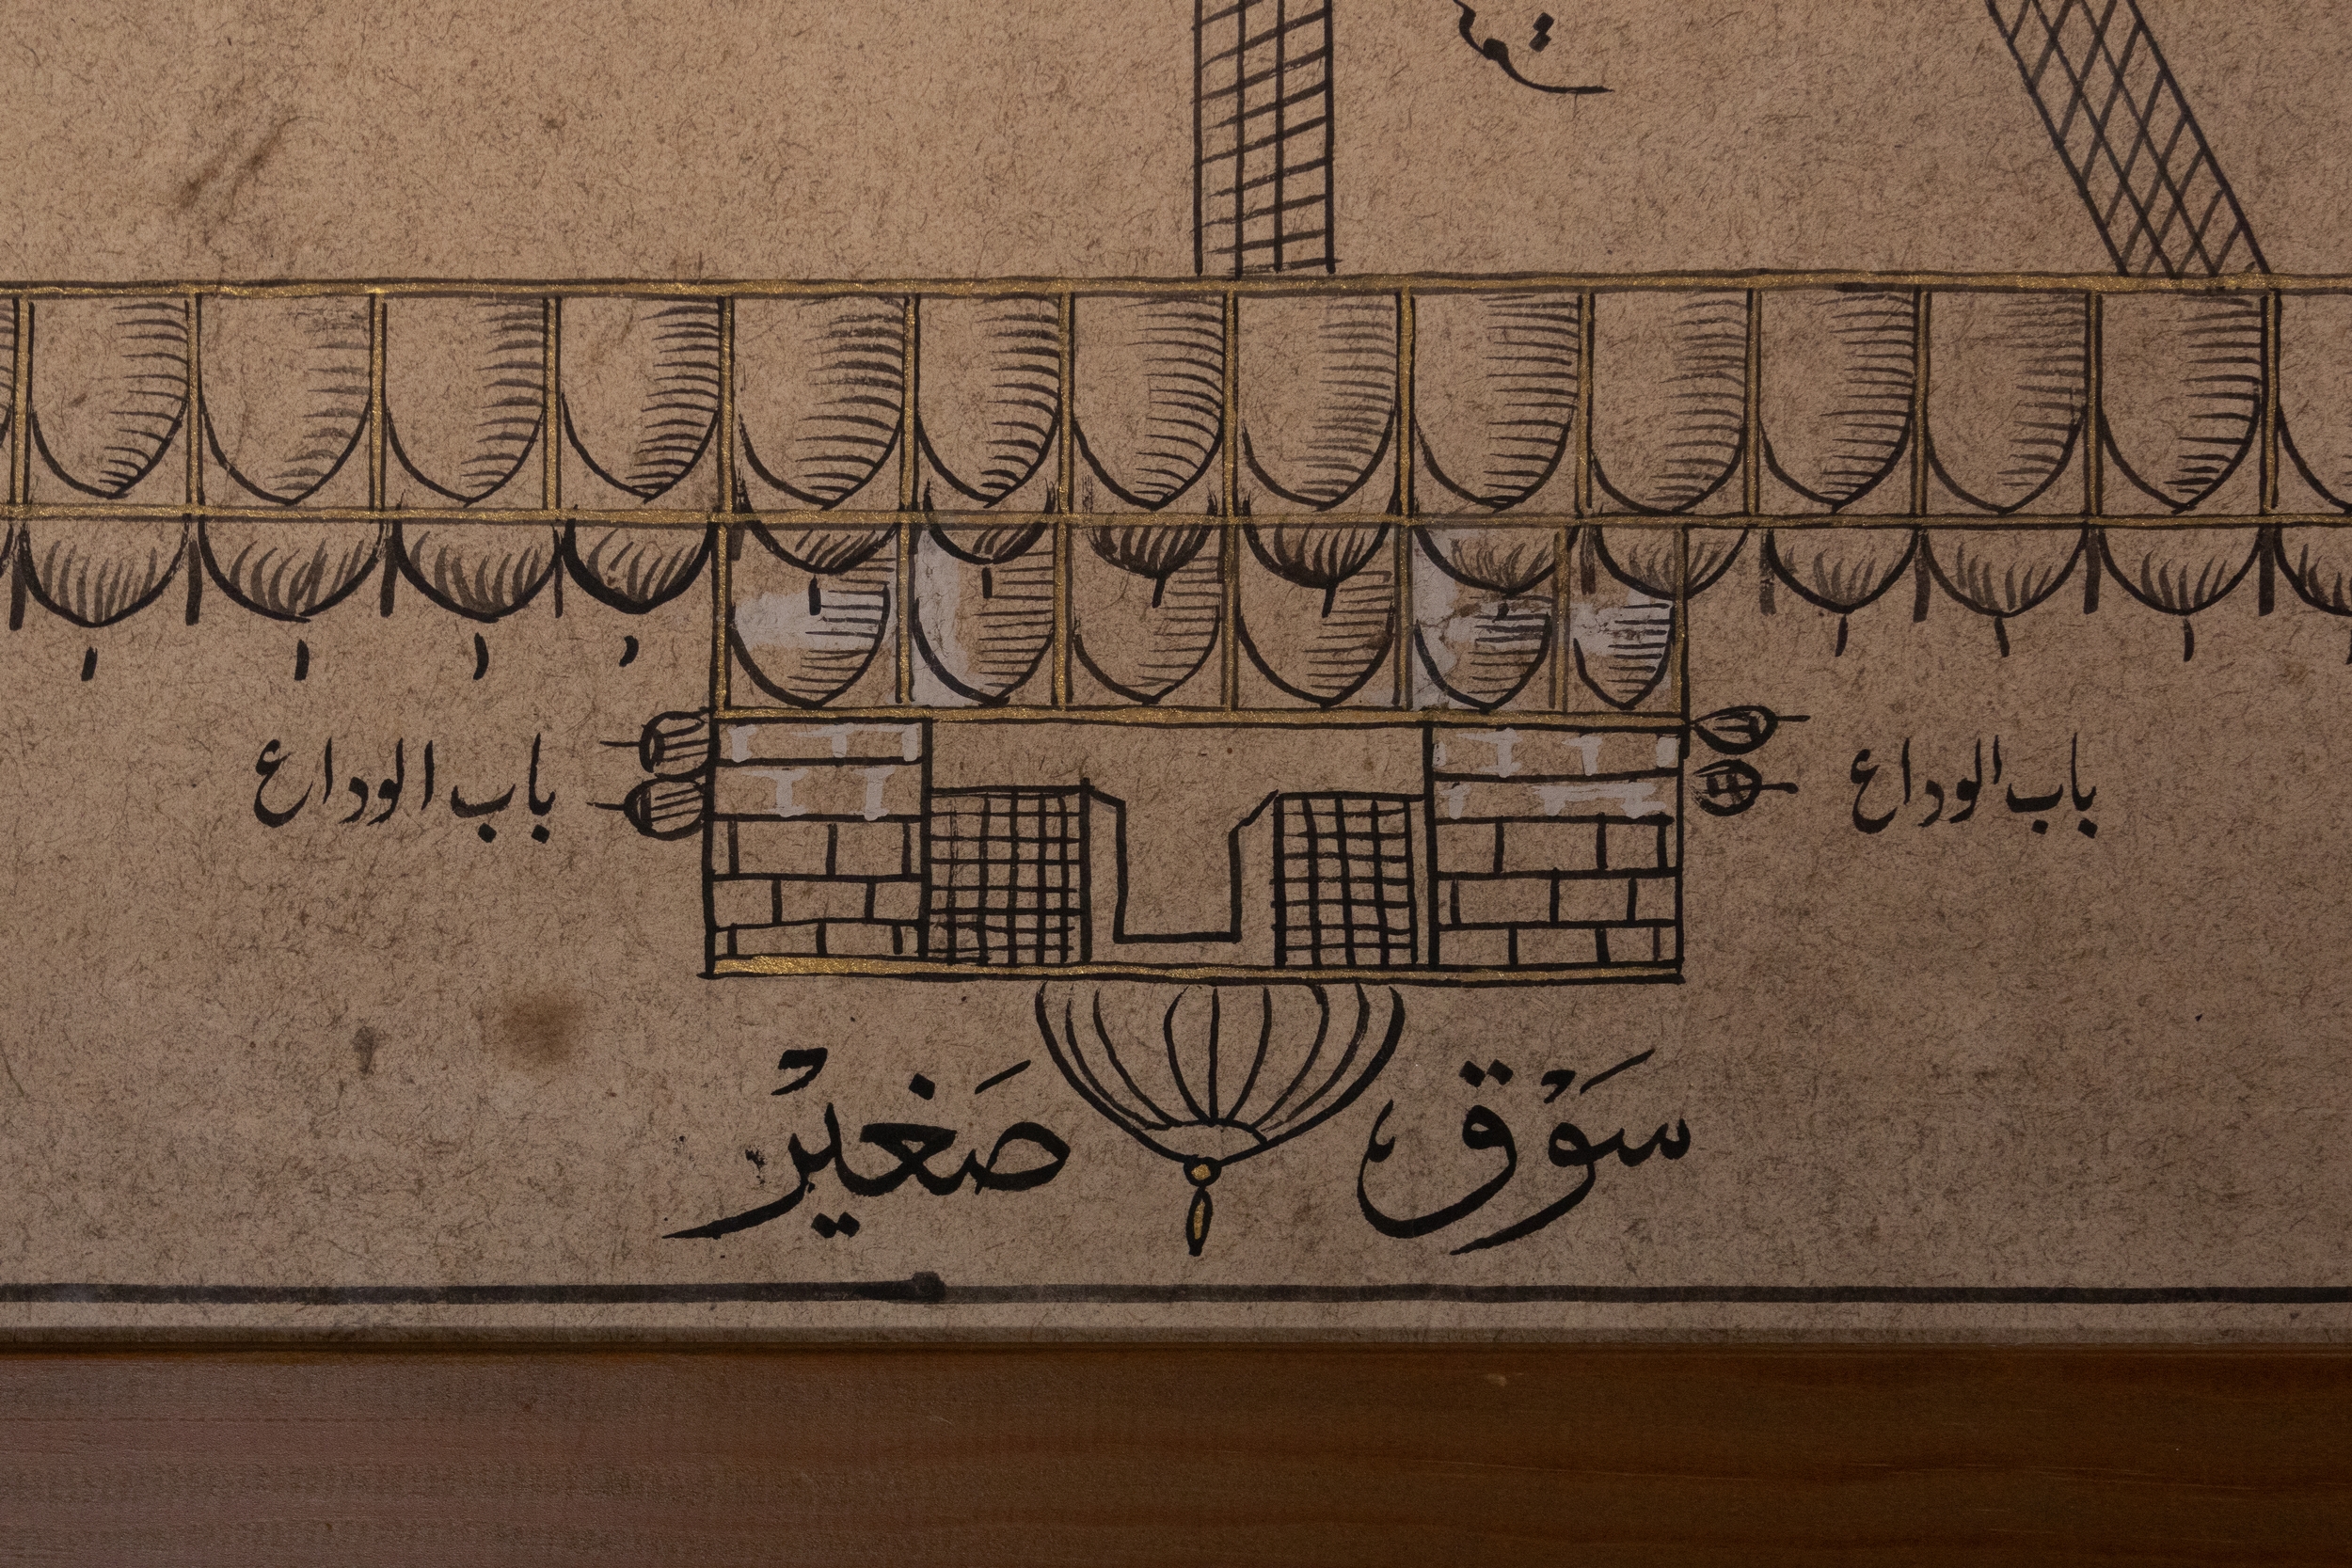 باب الوداع
باب الوداع
سَوْق صَغيْر